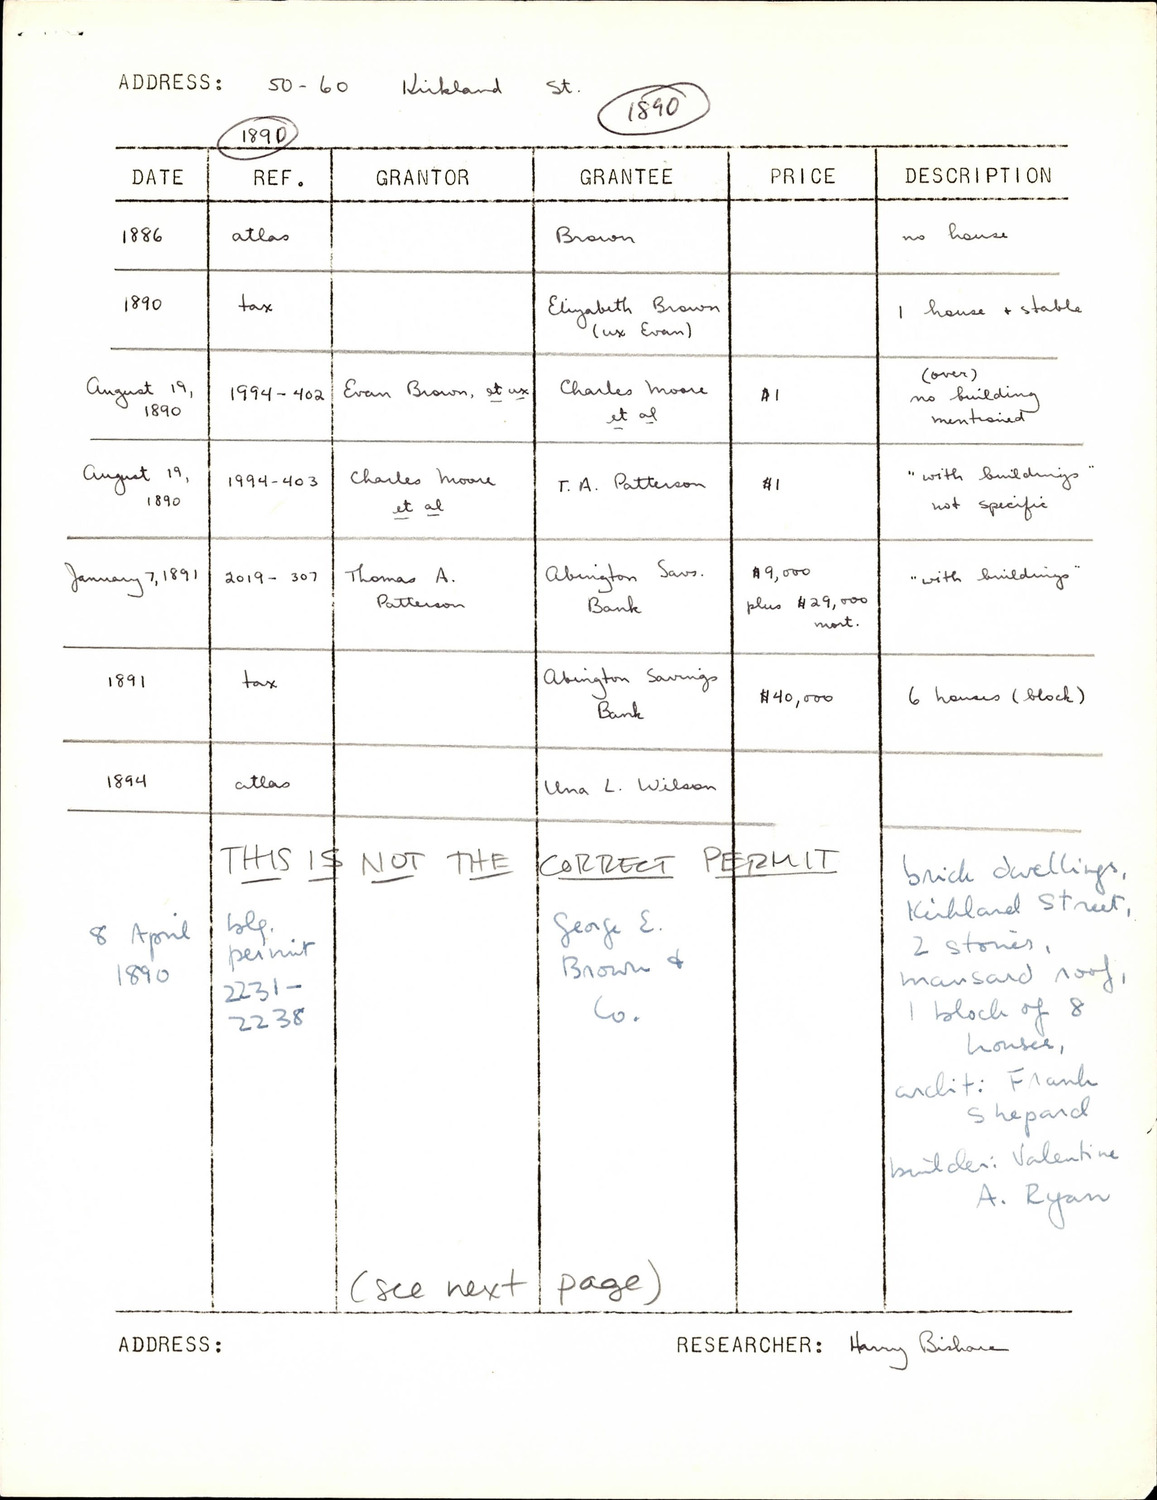 ADDRESS: 50-60 Kirkland St.
1890
1890
DATE REF. GRANTOR GRANTEE PRICE DESCRIPTION
1886 atlas Brown no house
1890 tax Elizabeth Brown 1 house + stable
(ux Evan)
(over)
August 19, 1994-402 Evan Brown, et ux Charles Moore $1 no building
1890 et al mentioned
August 19, 1994-403 Charles Moore T. A. Patterson $1 "with buildings"
1890 et al not specific
January 7, 1891 2019-307 Thomas A. Abington Savs. $9,000 "with buildings"
Patterson Bank plus $29,000
mort.
1891 tax Abington Savings $40,000 6 houses (block)
Bank
1894 atlas Una L. Wilson
THIS IS NOT THE CORRECT PERMIT
8 April
1890
blg.
permit
2231-
2238
George E.
Brown &
Co.
brick dwellings,
Kirkland Street,
2 stories,
mansard roof,
1 block of 8
houses,
archit: Frank
Shepard
builder: Valentine
A. Ryan
(see next page)
ADDRESS: RESEARCHER: Harry